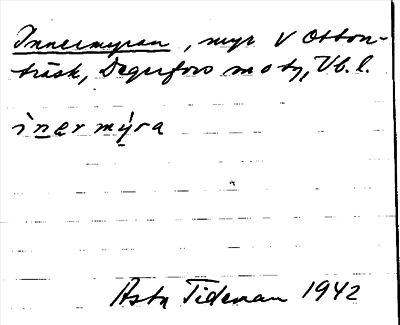 Innermyran, myr V Otton-
träsk, Degerfors sn o tg, Vb. l.
ìnər mýra
Asta Tideman 1942